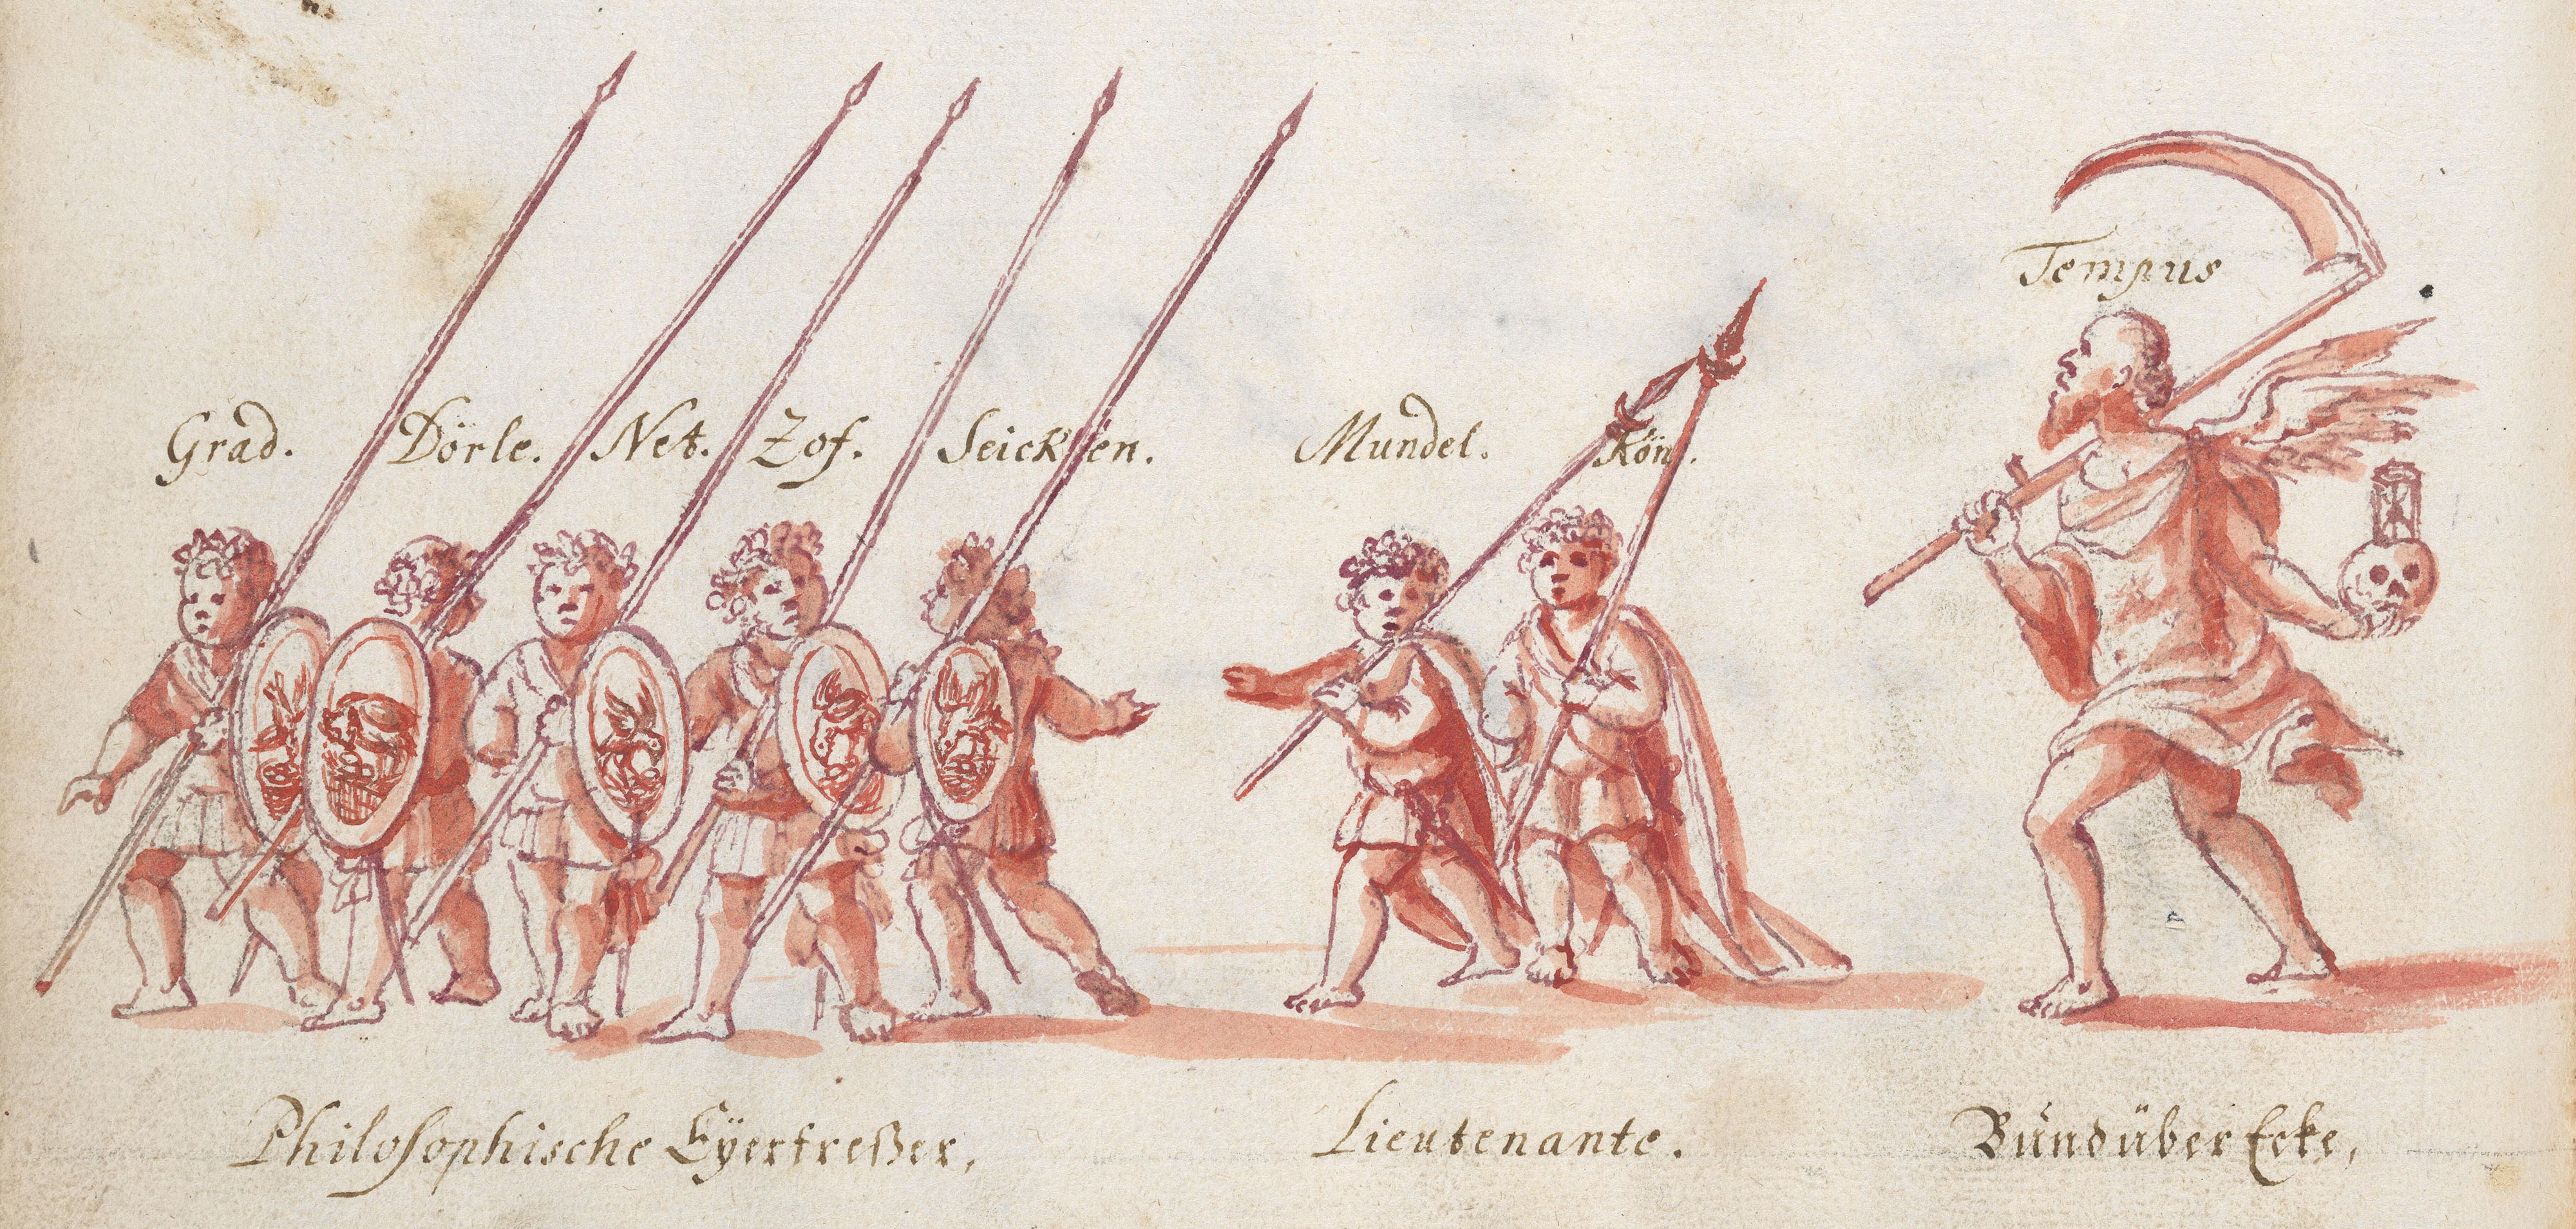 Tempus
Grad. Dörle. Net. Zof. Mundel. Kön.
Philosophische Eÿerfreßer, Lieutenante. Bund über Ecke,